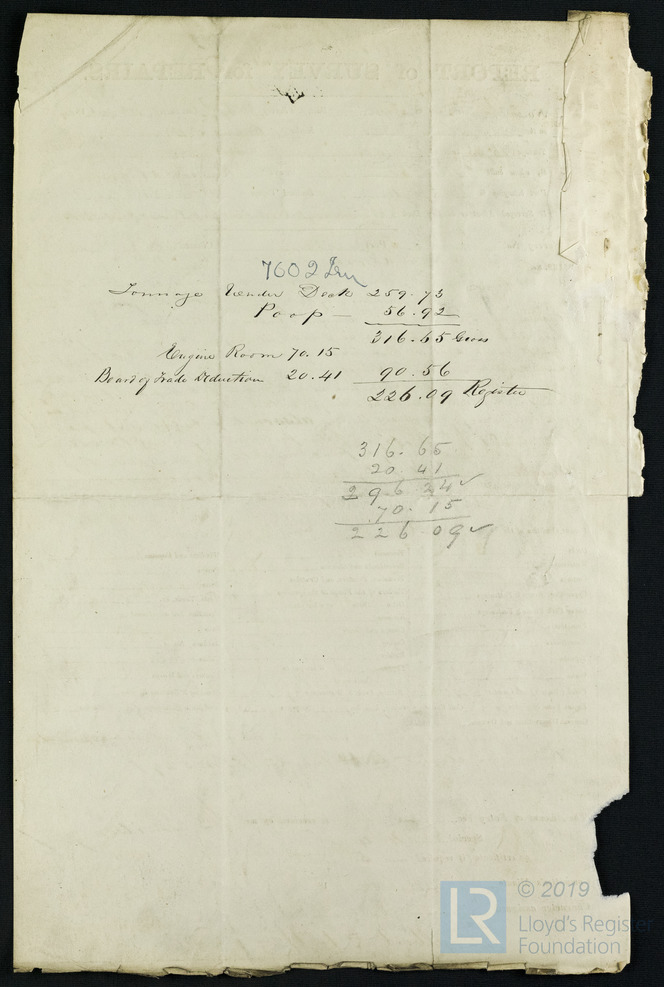 7602 Iron
Tonnage Under Deck 259.73
Poop — 56.92
316.65 Gross
Engine Room 70.15
Board of Trade Deduction 20.41 90.56
226.09 Register
316.65
20.41
296.24 ✓
70.15
226.09 ✓
LR © 2019
Lloyd's Register
Foundation